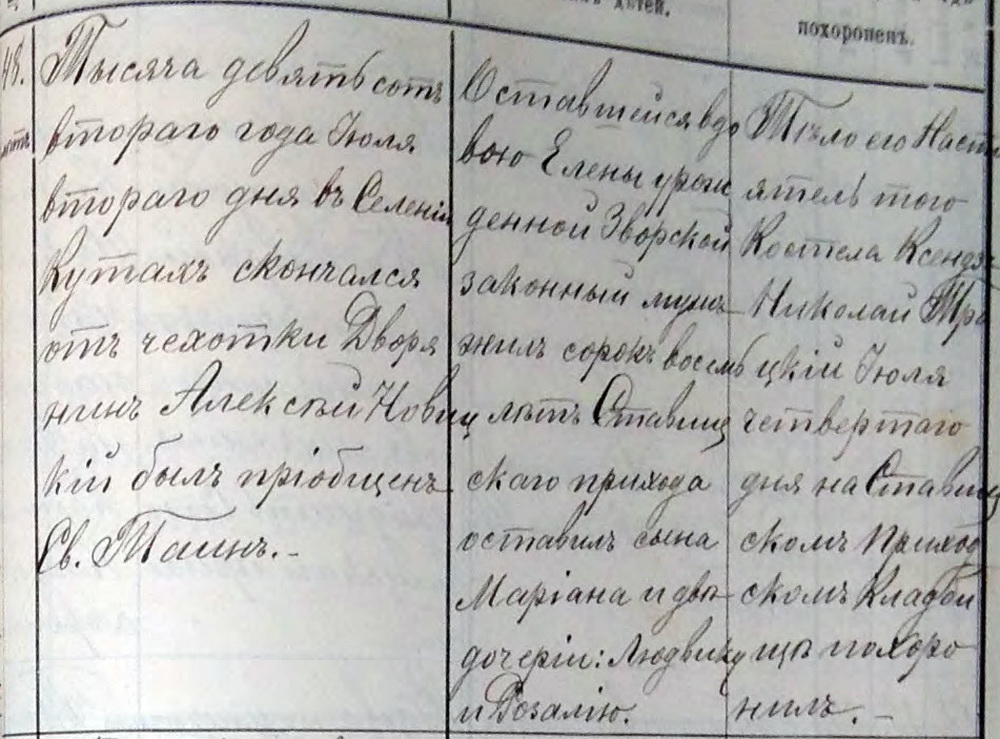 дѣтей.
похороненъ.
48.
Тысяча девятьсотъ
втораго года Іюля
втораго дня въ Селеніи
Кутахъ скончался
отъ чехотки Дворя
нинъ Алексѣй Новиц
кій былъ пріобщенъ
Св. Таинъ.-
Оставшейся вдо
вою Елены урож
денной Зворской
законный мужъ
жилъ сорокъ восемь
лѣтъ Ставищ
скаго прихода
оставилъ сына
Маріана и двѣ
дочеріи: Людвику
и Розалію.
Тѣло его Наст
ятель того
Костела Ксендзъ
Николай
цкій Іюля
четвертаго
дня на Ставищ
скомъ Приход
скомъ Кладби
щѣ похоро
нилъ.-